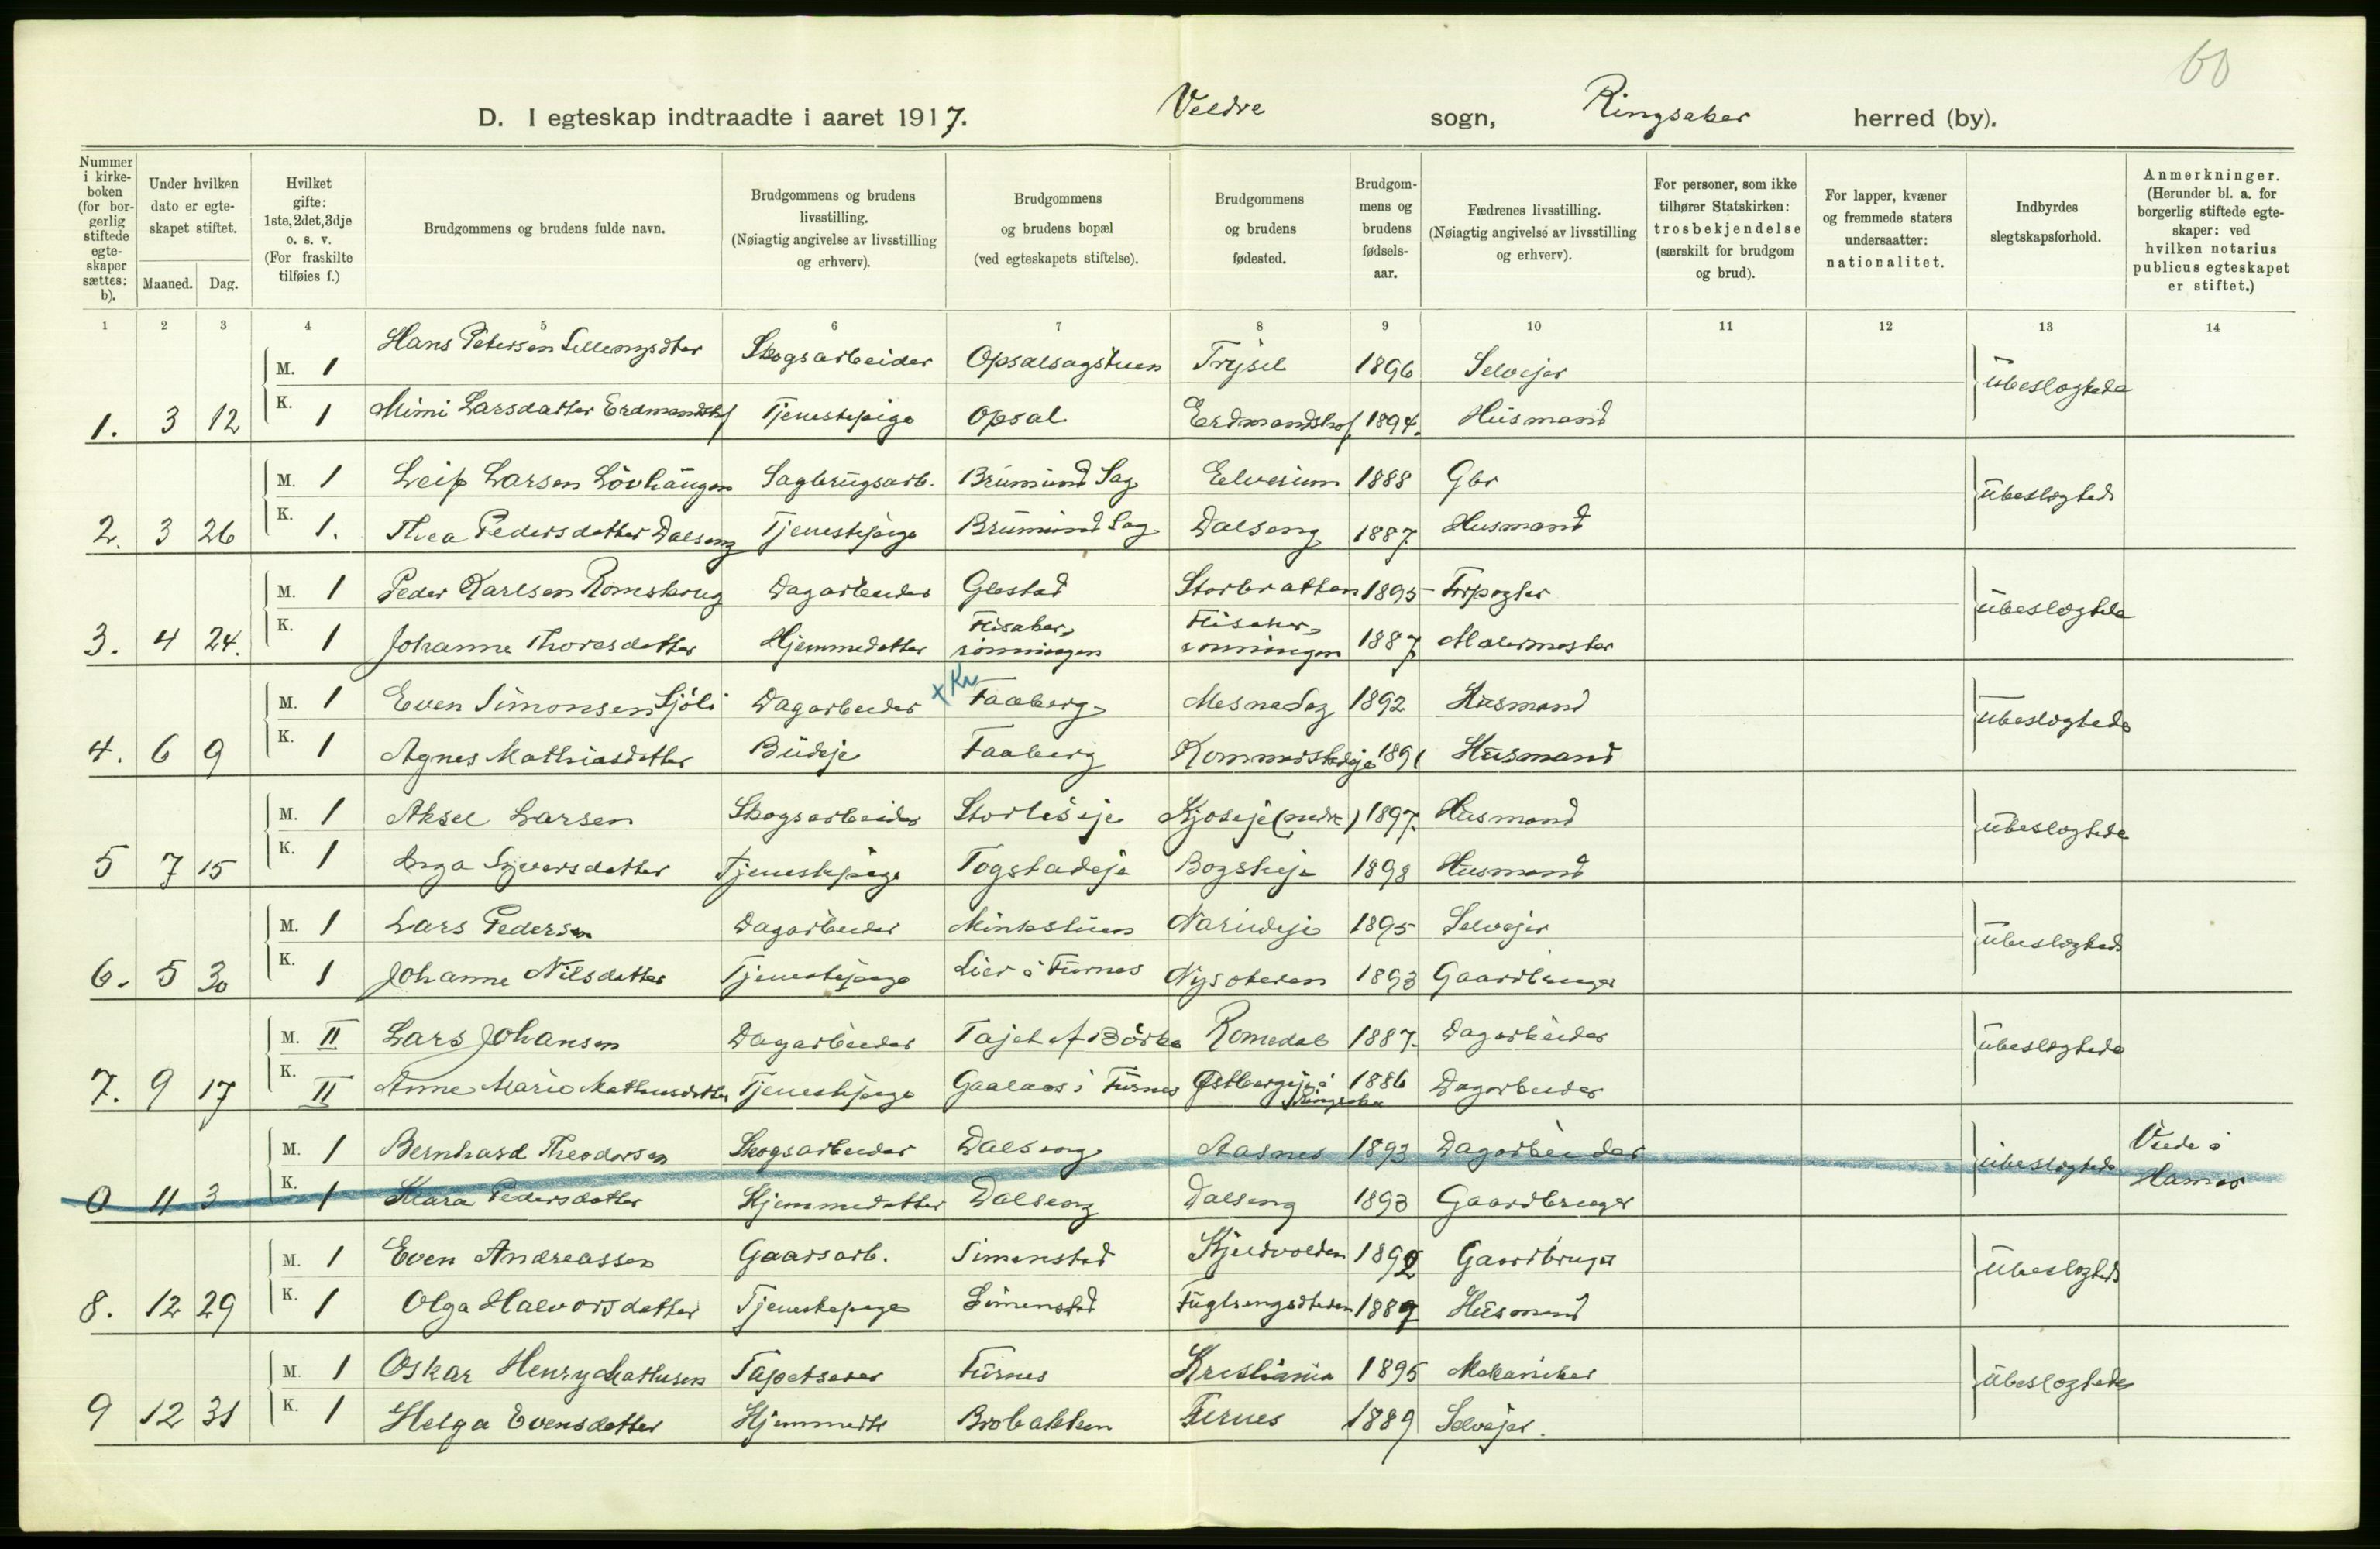 60
D. I egteskap indtraadte i aaret 1917. Veldre sogn, Ringsaker herred (by).
Nummer i kirke-boken (for bor-gerlig stiftede egte-skaper sættes: b).
Under hvilken dato er egte-skapet stiftet.
Maaned. Dag.
Hvilket gifte: 1ste, 2det, 3dje o. s. v. (For fraskilte tilføies f.)
Brudgommens og brudens fulde navn.
Brudgommens og brudens livsstilling. (Nøiagtig angivelse av livsstilling og erhverv).
Brudgommens og brudens bopæl (ved egteskapets stiftelse).
Brudgommens og brudens fødested.
Brudgom-mens og brudens fødsels-aar.
Fædrenes livsstilling. (Nøiagtig angivelse av livsstilling og erhverv).
For personer, som ikke tilhører Statskirken: trosbekjendelse (særskilt for brudgom og brud).
For lapper, kvæner og fremmede staters undersaatter: nationalitet.
Indbyrdes slegtskapsforhold.
Anmerkninger. (Herunder bl. a. for borgerlig stiftede egte-skaper: ved hvilken notarius publicus egteskapet er stiftet.)
1 2 3 4 5 6 7 8 9 10 11 12 13 14
M. 1 Hans Petersen Skogsarbeider Opsalsagstuen Trysil 1896 Selvejer ubeslogtede
1. 3 12 K. 1 Mimi Larsdatter Erdmandshof Tjenestepige Opsal Erdmandshof 1894. Husmand
M. 1 Leif Larsen Lövhaugen Sagbrugsarb. Brumund Sag Elverum 1888 Gbr ubeslogted
2. 3 26 K. 1. Thea Pedersdatter Dalseng Tjenestepige Brumund Sag Dalseng 1887 Husmand
M. 1 Peder Karlsen Romskrug Dagarbeider Glestad Storbratten 1895 ubeslogtede
3. 4 24. K. 1 Johanne Thoresdatter Hjemmedatter Flisaker-rönningen Flisaker-rönningen 1887 Malermester
M. 1 Even Simonsen Sjöli Dagarbeider + Kr Faaberg Mesna Sag 1892 Husmand ubeslogtede
4. 6 9 K. 1 Agnes Mathiasdatter Budeje Faaberg 1891 Husmand
M. 1 Aksel Larsen Skogsarbeider Storliseje Kjoseje (nedre) 1897. Husmand ubeslogtede
5 7 15 K. 1 Inga Syversdatter Tjenestepige Togstadeje 1898 Husmand
M. 1 Lars Pedersen Dagarbeider Minkstuen Narudeje 1895 Selvejer ubeslogted
6. 5 30 K. 1 Johanne Nilsdatter Tjenestepige Lier i Furnes 1893 Gaardbruger
M. II Lars Johansen Dagarbeider Tajet af Börke Romedal 1887. Dagarbeider ubeslogtede
7. 9 17 K. II Anne Marie Mathiusdatter Tjenestepige Gaalaas i Furnes Østbergeje i Ringsaker 1886 Dagarbeider
M. 1 Bernhard Theodorsen Skogsarbeider Dalseng Aasnes 1893 Dagarbeider ubeslogtede Viede i
0 11 3 K. 1 Klara Pedersdatter Hjemmedatter Dalseng Dalseng 1893 Gaardbruger Hamar
M. 1 Even Andreassen Gaarsarb. Simenstad Kjeldvolden 1892 Gaardbruger ubeslogted
8. 12 29 K. 1 Olga Halvorsdatter Tjenestepige Simenstad 1889 Husmand
M. 1 Oskar Henry Mathisen Tapetserer Furnes Kristiania 1895 Mekaniker ubeslogtede
9 12 31 K. 1 Helga Evensdatter Hjemmedt Brobakken Furnes 1889 Selvejer.